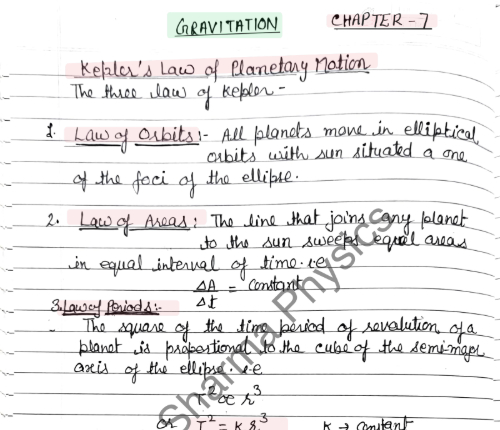 GRAVITATION CHAPTER - 7
Kepler's Law of Planetary Motion
The three law of Kepler -
1. Law of Orbits :- All planets move in elliptical
orbits with sun situated a one
of the foci of the ellipse.
2. Law of Areas : The line that joins any planet
to the sun sweeps equal areas
in equal interval of time. i.e
ΔA/Δt = constant
3. Law of Periods :-
The square of the time period of revolution of a
planet is proportional to the cube of the semi-major
axis of the ellipse. i.e
T² ∝ r³
or T² = K r³ K → constant
Sharma Physics